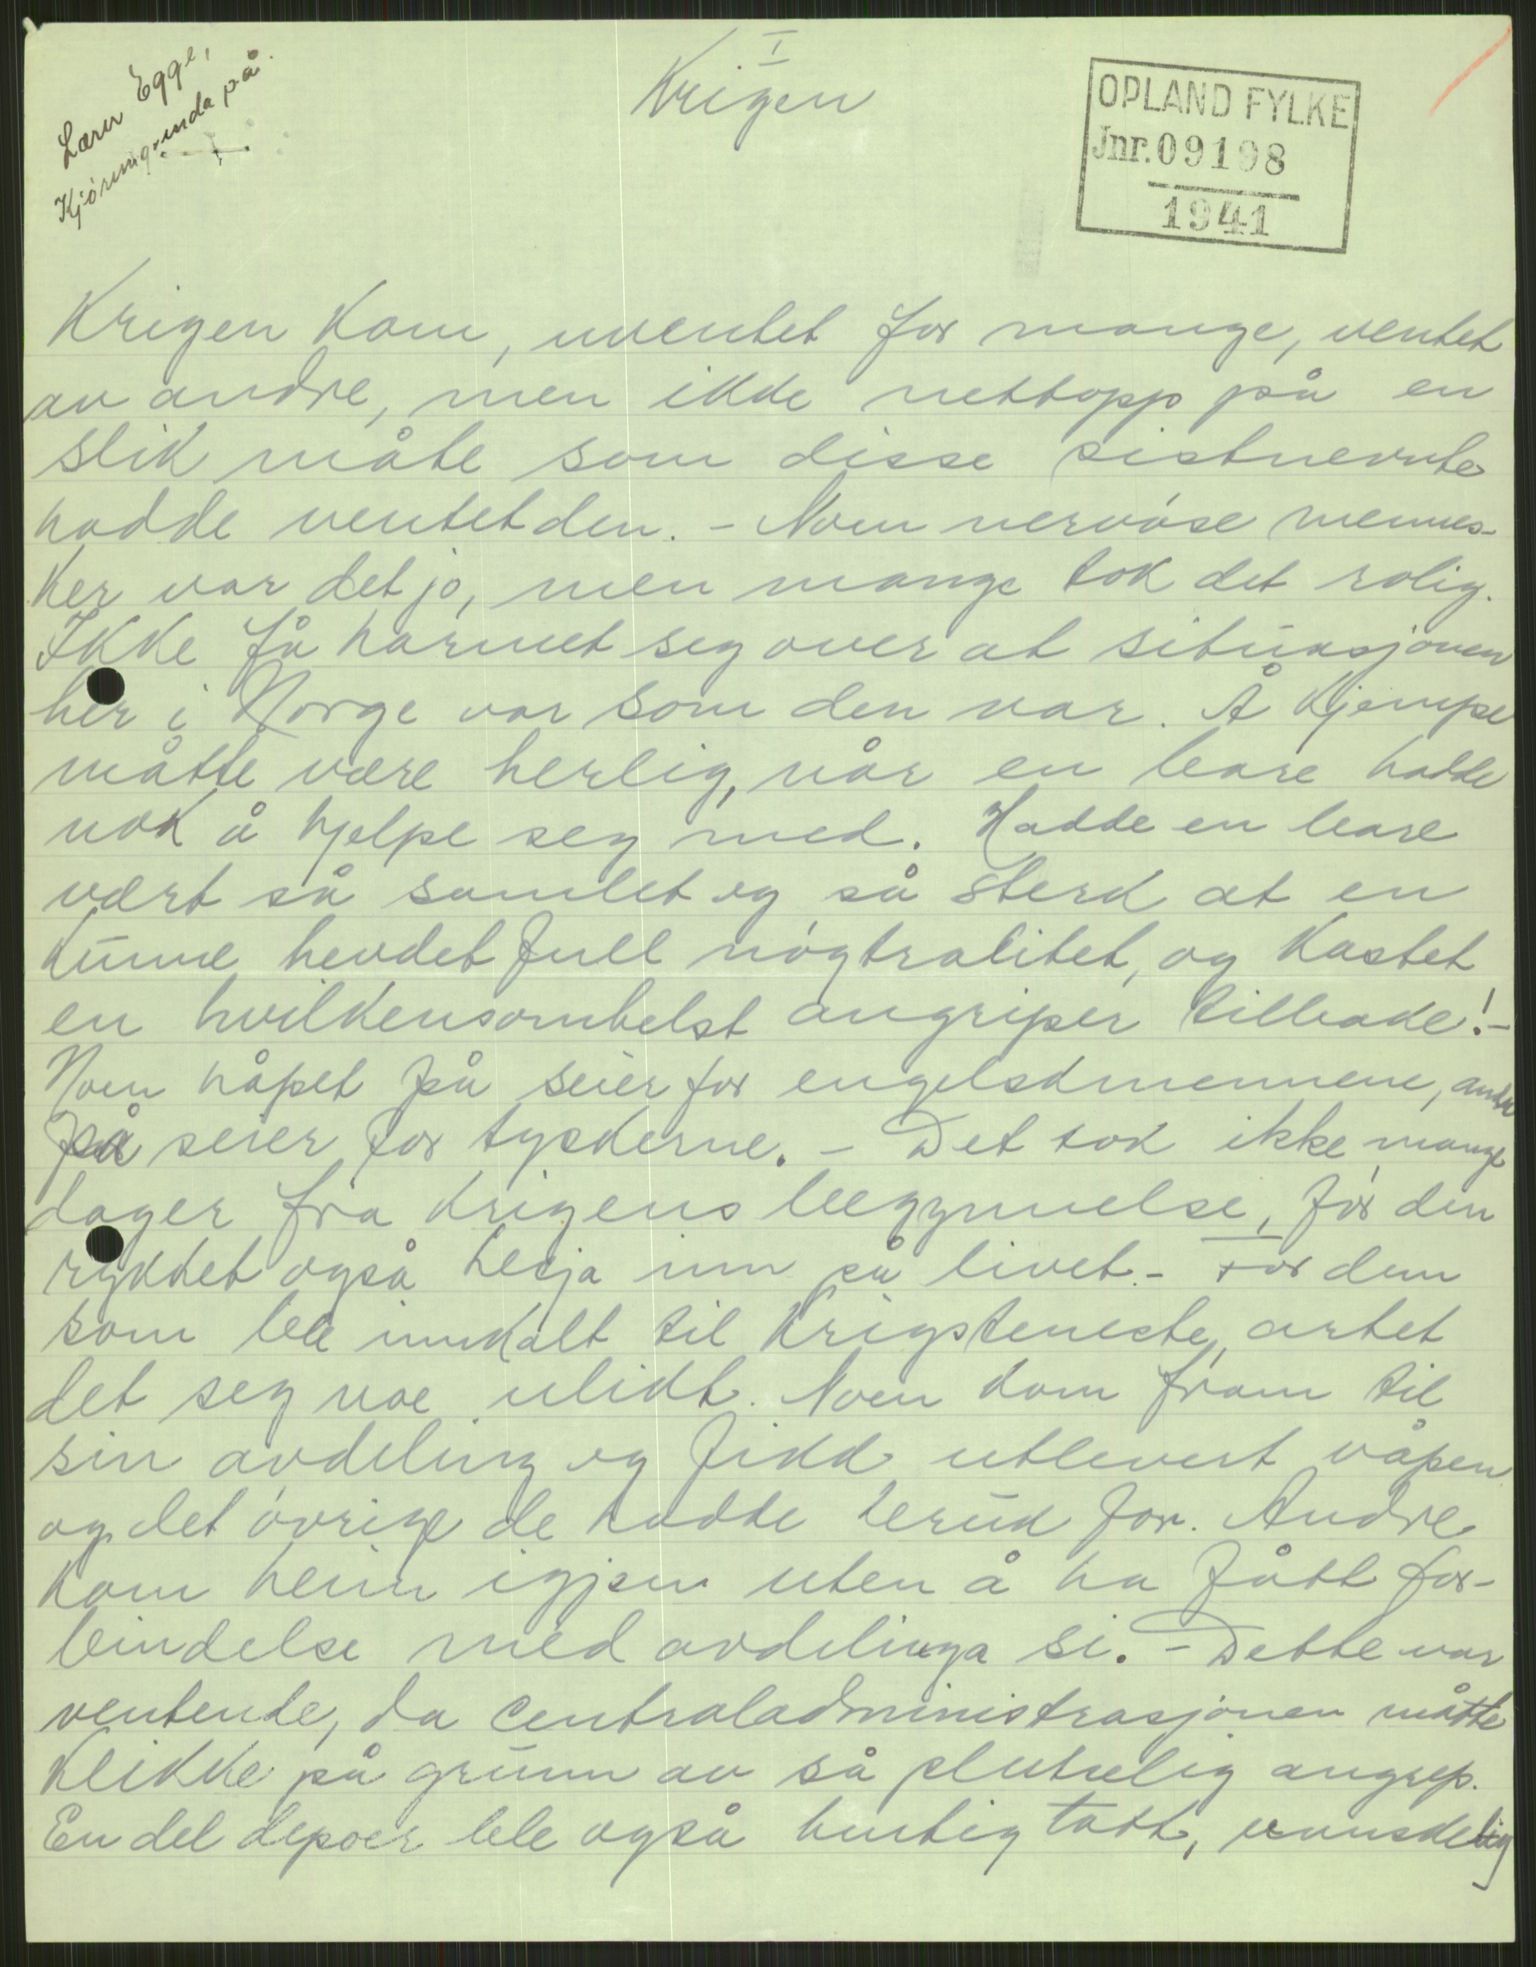 Lærer Egge,
på
I
Krigen
OPLAND FYLKE
Jnr. 09198
1941
Krigen kom, uventet for mange, ventet
av andre, men ikke nettopp på en
slik måte som disse sistnevnte
hadde ventet den. - Noen nervøse mennes-
ker var det jo, men mange tok det rolig.
Ikke få harmet seg over at situasjonen
her i Norge var som den var. Å kjempe
måtte være herlig, når en bare hadde
nok å hjelpe seg med. Hadde en bare
vært så samlet og så sterk at en
kunne hevdet full nøgtralitet, og kastet
en hvilkensomhelst angriper tilbake! -
Noen håpet på seier for engelskmennene, andre
på seier for tyskerne. - Det tok ikke mange
dager fra krigens begynnelse, før den
rykket også Lesja inn på livet. - For dem
som ble innkalt til krigsteneste, artet
det seg noe ulikt. Noen kom fram til
sin avdeling og fikk utlevert våpen
og det øvrige de hadde bruk for. Andre
kom heim igjen uten å ha fått for-
bindelse med avdelinga si. - Dette var
ventende, da centraladministrasjonen måtte
klikke på grunn av så plutselig angrep.
En del depoer ble også hurtig tatt, vanskelig